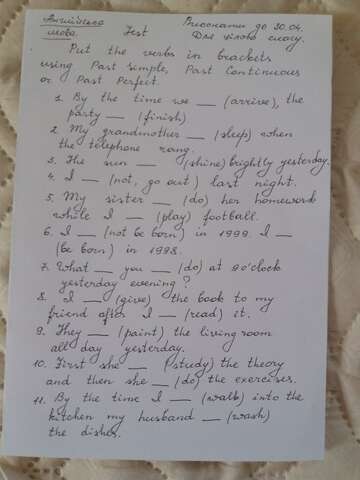 Англійська Виконати до 30.04.
мова. Test Для цілого класу.
Put the verbs in brackets
using Past simple, Past Continuous
or Past Perfect.
1. By the time we __ (arrive), the
party __ (finish)
2. My grandmother __ (sleep) when
the telephone rang.
3. The sun __ (shine) brightly yesterday.
4. I __ (not, go out) last night.
5. My sister __ (do) her homework
while I __ (play) football.
6. I __ (not be born) in 1999. I __
(be born) in 1998.
7. What __ you __ (do) at 9 o'clock
yesterday evening?
8. I __ (give) the book to my
friend after I __ (read) it.
9. They __ (paint) the living room
all day yesterday.
10. First she __ (study) the theory
and then she __ (do) the exercises.
11. By the time I __ (walk) into the
kitchen my husband __ (wash)
the dishes.